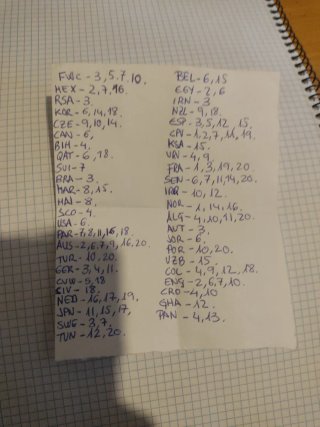 FWC - 3, 5, 7, 10.
MEX - 2, 7, 16.
RSA - 3.
KOR - 6, 14, 18.
CZE - 9, 10, 14.
CAN - 6,
BIH - 4.
QAT - 6, 18.
SUI - 7
BRA - 3.
MAR - 8, 15, 9.
HAI - 8,
SCO - 4.
USA - 6.
PAR - 7, 8, 11, 16, 18.
AUS - 2, 6, 7, 9, 16, 20.
TUR - 10, 20.
GER - 3, 4, 11.
CUW - 5, 18
CIV - 18.
NED - 16, 17, 19,
JPN - 11, 15, 17,
SWE - 3, 7,
TUN - 12, 20.
BEL - 6, 15
EGY - 2, 6
IRN - 3
NZL - 9, 18.
ESP - 3, 5, 12, 15,
CPV - 1, 2, 7, 11, 19.
KSA - 15.
URU - 4, 9.
FRA - 1, 3, 19, 20
SEN - 6, 7, 11, 14, 20.
IRQ - 10, 12.
NOR - 1, 14, 16.
ALG - 4, 10, 11, 20
AUT - 3.
JOR - 6.
POR - 10, 20.
UZB - 15.
COL - 4, 9, 12, 18.
ENG - 2, 6, 7, 10.
CRO - 4, 10
GHA - 12.
PAN - 4, 13.